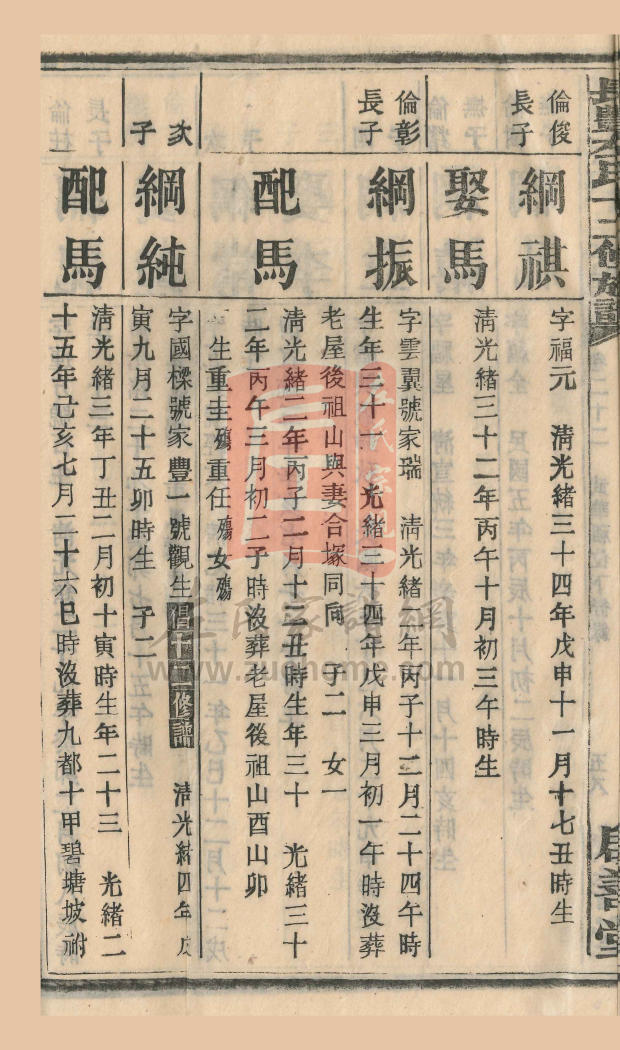 倫俊
長子
綱祺
字福元 清光緒三十四年戊申十一月十七丑時生
娶馬
清光緒三十二年丙午十月初三午時生
倫彰
長子
綱振
字雲翼號家瑞 清光緒二年丙子十二月二十四午時
生年三十 光緒三十四年戊申三月初一午時沒葬
老屋後祖山與妻合塚同向 子二 女一
配馬
清光緒二年丙子二月十三丑時生年三十 光緒三十
二年丙午三月初二子時沒葬老屋後祖山酉山卯
生重圭殤重任殤女殤
次
子
綱純
字國樑號家豐一號觀生倡十二修譜 清光緒四年戊
寅九月二十五卯時生 子二
配馬
清光緒三年丁丑二月初十寅時生年二十三 光緒二
十五年己亥七月二十六巳時沒葬九都十甲碧塘坡祔
卷二十二
五六
啟善堂
左氏家譜網
www.zuohome.com